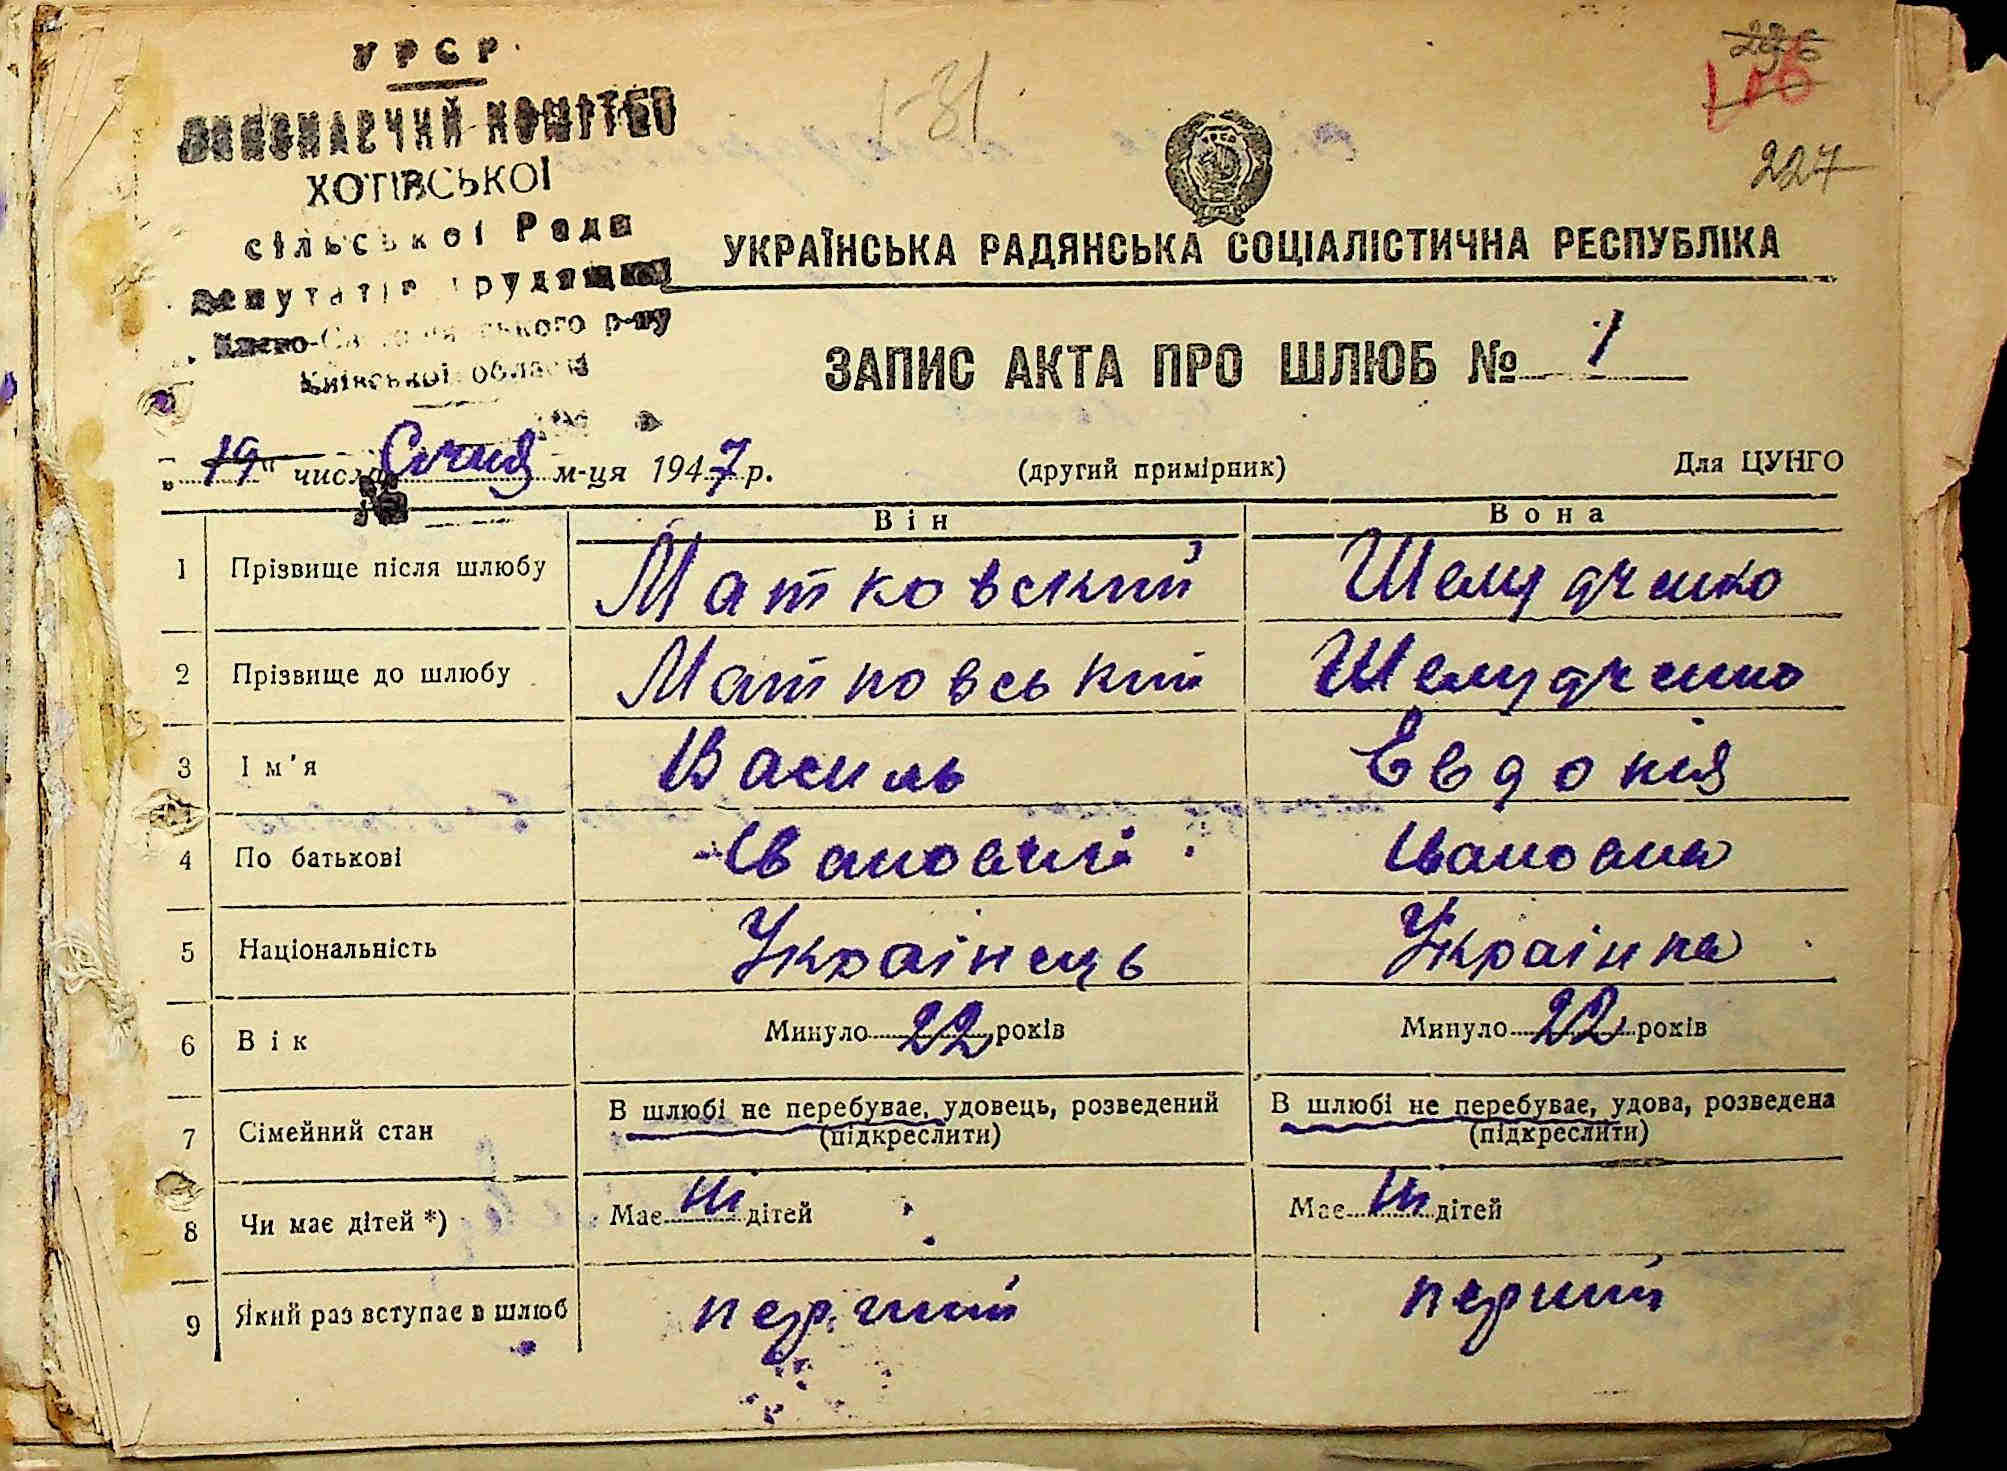 УРСР
ВИКОНАВЧИЙ КОМІТЕТ
ХОТІВСЬКОЇ
сільської Ради
депутатів трудящих
Києво-Святошинського р-ну
Київської області
1-31
226
227
УКРАЇНСЬКА РАДЯНСЬКА СОЦІАЛІСТИЧНА РЕСПУБЛІКА
ЗАПИС АКТА ПРО ШЛЮБ № 1
„19" числа Січня м-ця 1947 р. (другий примірник) Для ЦУНГО
Він Вона
1 Прізвище після шлюбу Матковский Шелудченко
2 Прізвище до шлюбу Матковський Шелудченко
3 Ім'я Василь Евдокія
4 По батькові Іванович Івановна
5 Національність Украінець Украінка
6 Вік Минуло 22 років Минуло 22 років
7 Сімейний стан В шлюбі не перебуває, удовець, розведений (підкреслити) В шлюбі не перебуває, удова, розведена (підкреслити)
8 Чи має дітей *) Має ні дітей Має ні дітей
9 Який раз вступає в шлюб перший перший